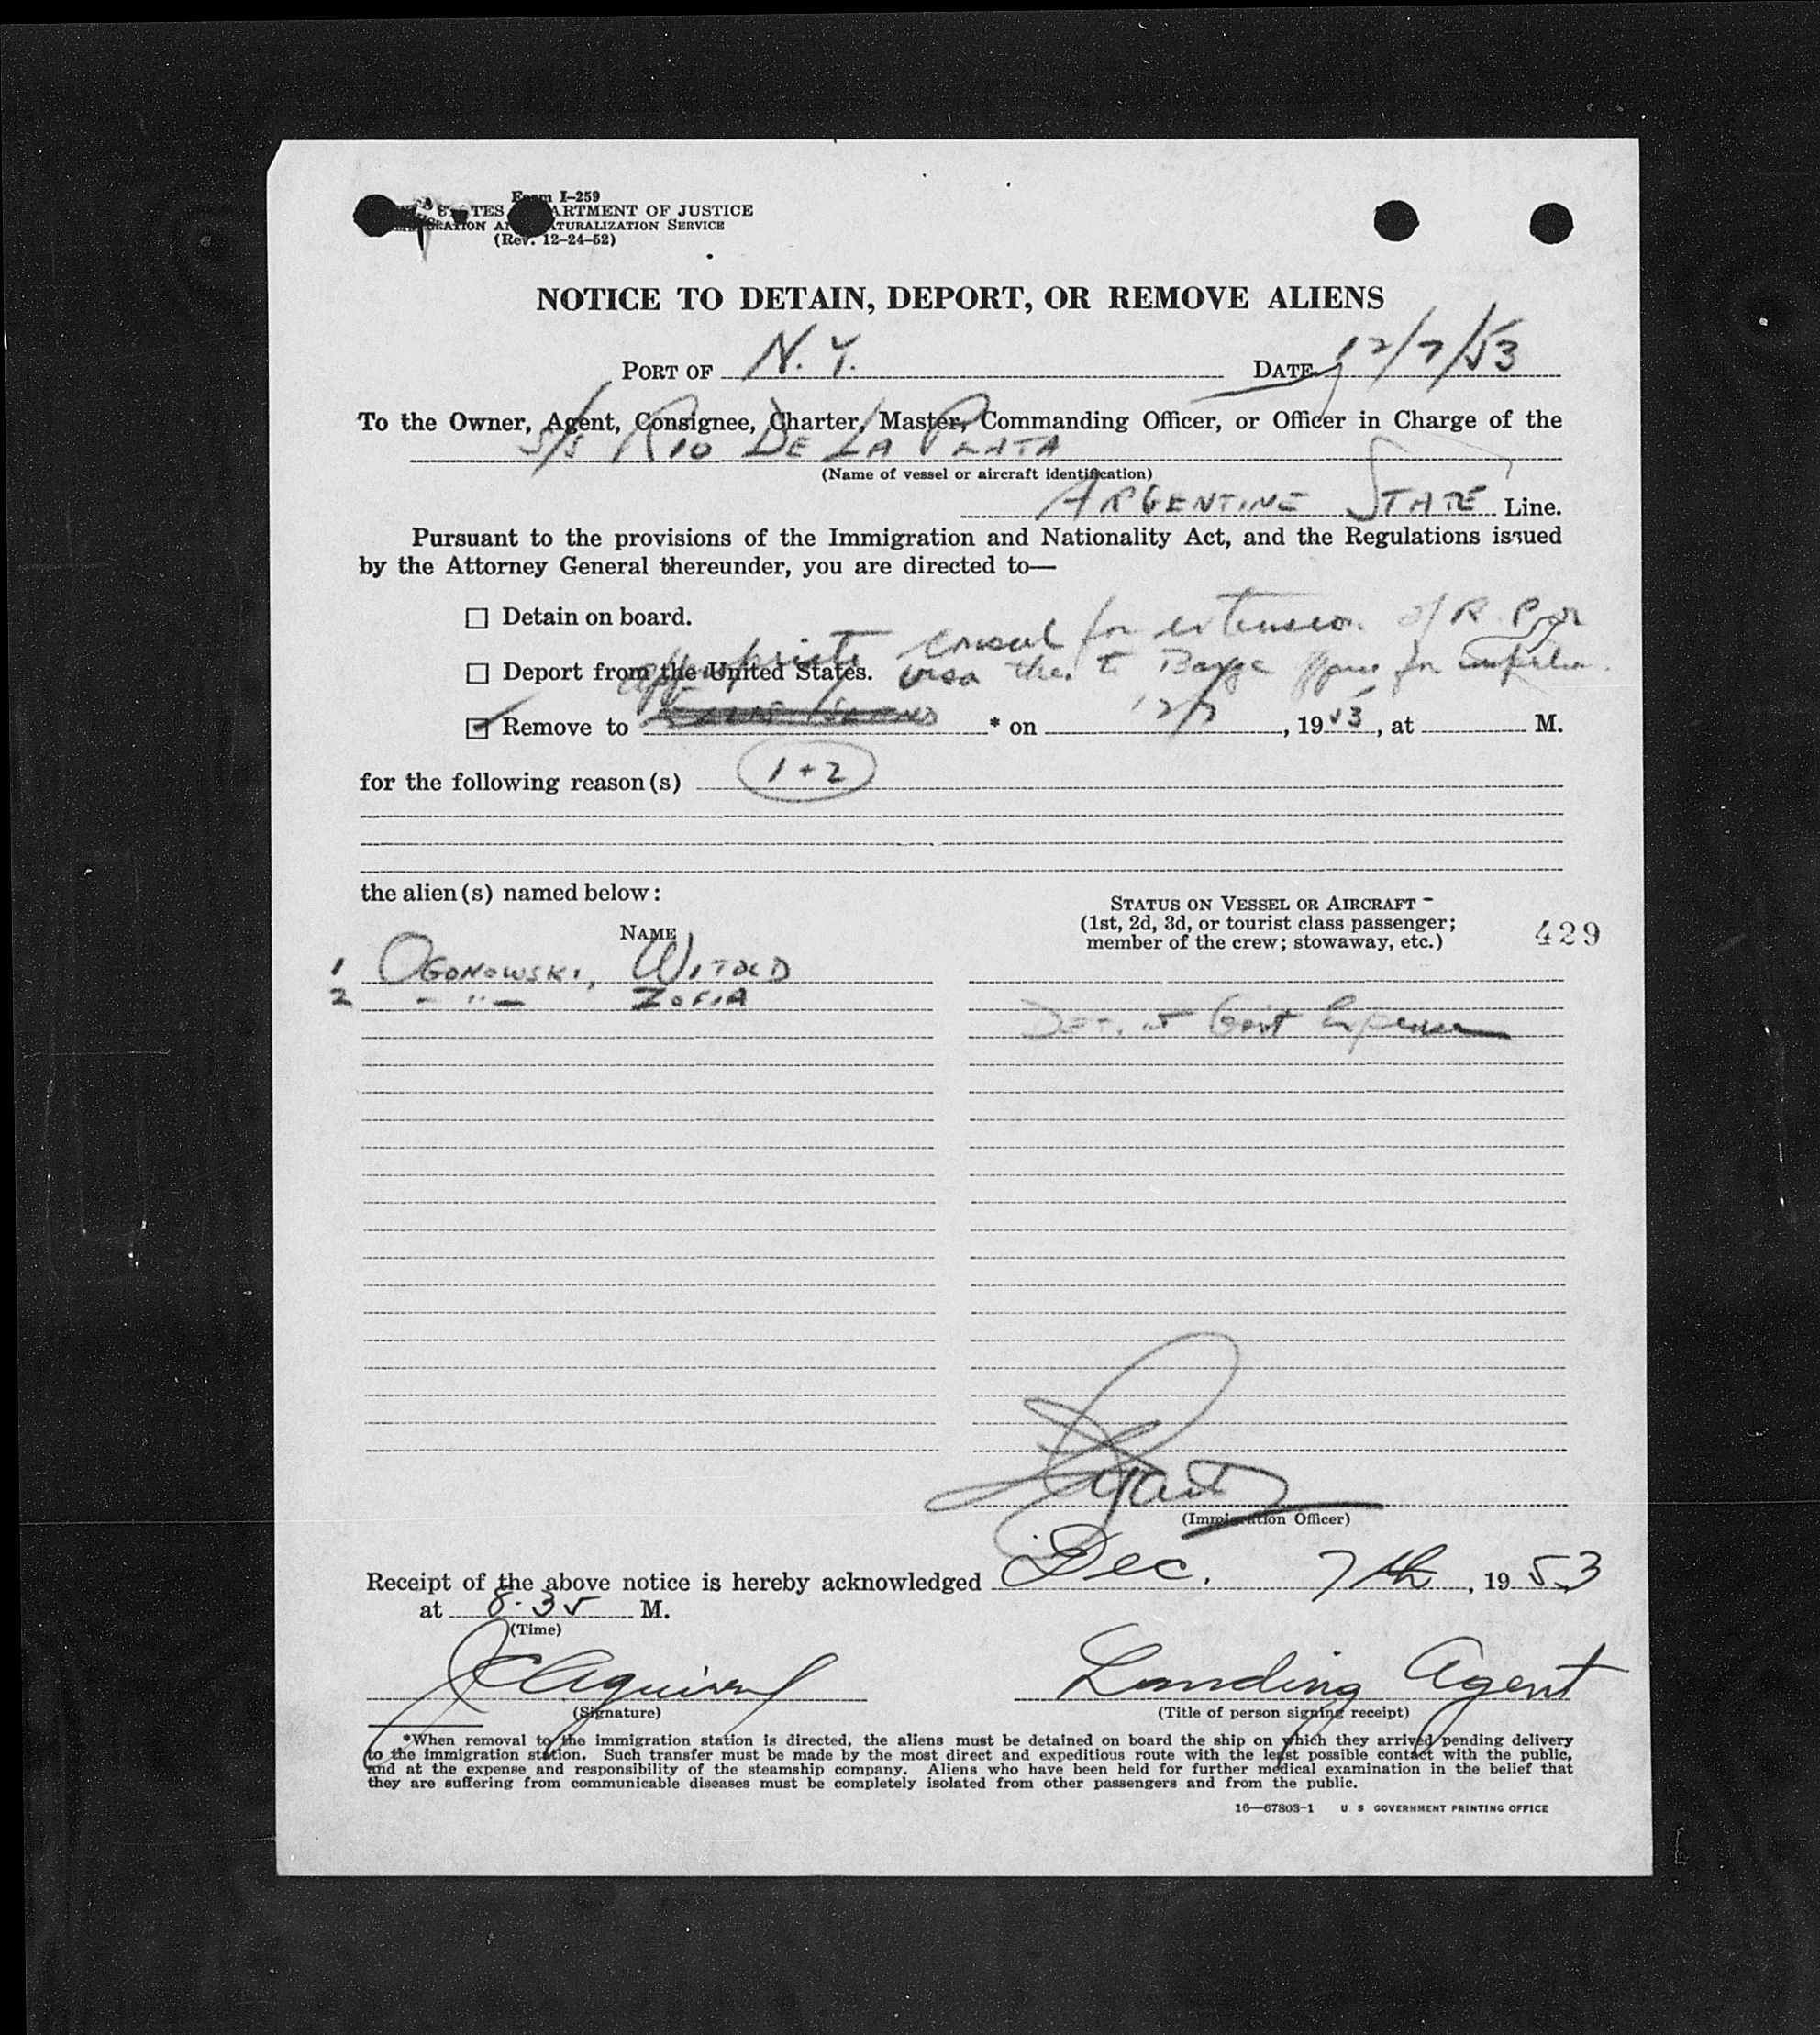 Form I-259
STATES DEPARTMENT OF JUSTICE
IMMIGRATION AND NATURALIZATION SERVICE
(Rev. 12-24-52)
NOTICE TO DETAIN, DEPORT, OR REMOVE ALIENS
PORT OF N. Y. DATE 12/7/53
To the Owner, Agent, Consignee, Charter, Master, Commanding Officer, or Officer in Charge of the
S/S RIO DE LA PLATA
(Name of vessel or aircraft identification)
ARGENTINE STATE Line.
Pursuant to the provisions of the Immigration and Nationality Act, and the Regulations issued
by the Attorney General thereunder, you are directed to—
☐ Detain on board.
appropriate consul for extension of R. P. or
☐ Deport from the United States. visa then to Barge Office for
☑ Remove to ELLIS ISLAND * on 12/7, 1953, at M.
for the following reason(s) 1+2
the alien(s) named below:
STATUS ON VESSEL OR AIRCRAFT -
(1st, 2d, 3d, or tourist class passenger;
member of the crew; stowaway, etc.)
429
NAME
1 OGONOWSKI, WITOLD
2 - " - ZOFIA
Det. at Govt Expense
(Immigration Officer)
Receipt of the above notice is hereby acknowledged Dec. 7th, 1953
at 8:35 M.
(Time)
Landing Agent
(Signature)
(Title of person signing receipt)
*When removal to the immigration station is directed, the aliens must be detained on board the ship on which they arrived pending delivery
to the immigration station. Such transfer must be made by the most direct and expeditious route with the least possible contact with the public,
and at the expense and responsibility of the steamship company. Aliens who have been held for further medical examination in the belief that
they are suffering from communicable diseases must be completely isolated from other passengers and from the public.
16—67803-1 U S GOVERNMENT PRINTING OFFICE